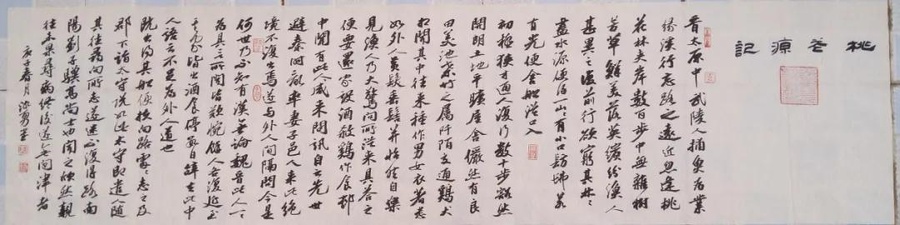 桃花源記
晉太原中武陵人捕魚為業
緣溪行忘路之遠近忽逢桃
花林夾岸數百步中無雜樹
芳草鮮美落英繽紛漁人
甚異之復前行欲窮其林林
盡水源便得一山山有小口髣髴若
有光便舍船從口入
初極狹才通人復行數十步豁然
開朗土地平曠屋舍儼然有良
田美池桑竹之屬阡陌交通雞犬
相聞其中往來種作男女衣著悉
如外人黃髮垂髫并怡然自樂
見漁人乃大驚問所從來具答之
便要還家設酒殺雞作食村
中聞有此人咸來問訊自云先世
避秦時亂率妻子邑人來此絕
境不復出焉遂與外人間隔問今是
何世乃不知有漢無論魏晉此人一一
為具言所聞皆歎惋餘人各復延至
其家皆出酒食停數日辭去此中
人語云不足為外人道也
既出得其船便扶向路處處志之及
郡下詣太守說如此太守即遣人隨
其往尋向所志遂迷不復得路南
陽劉子驥高尚士也聞之欣然親
往未果尋病終後遂無問津者
庚子春月